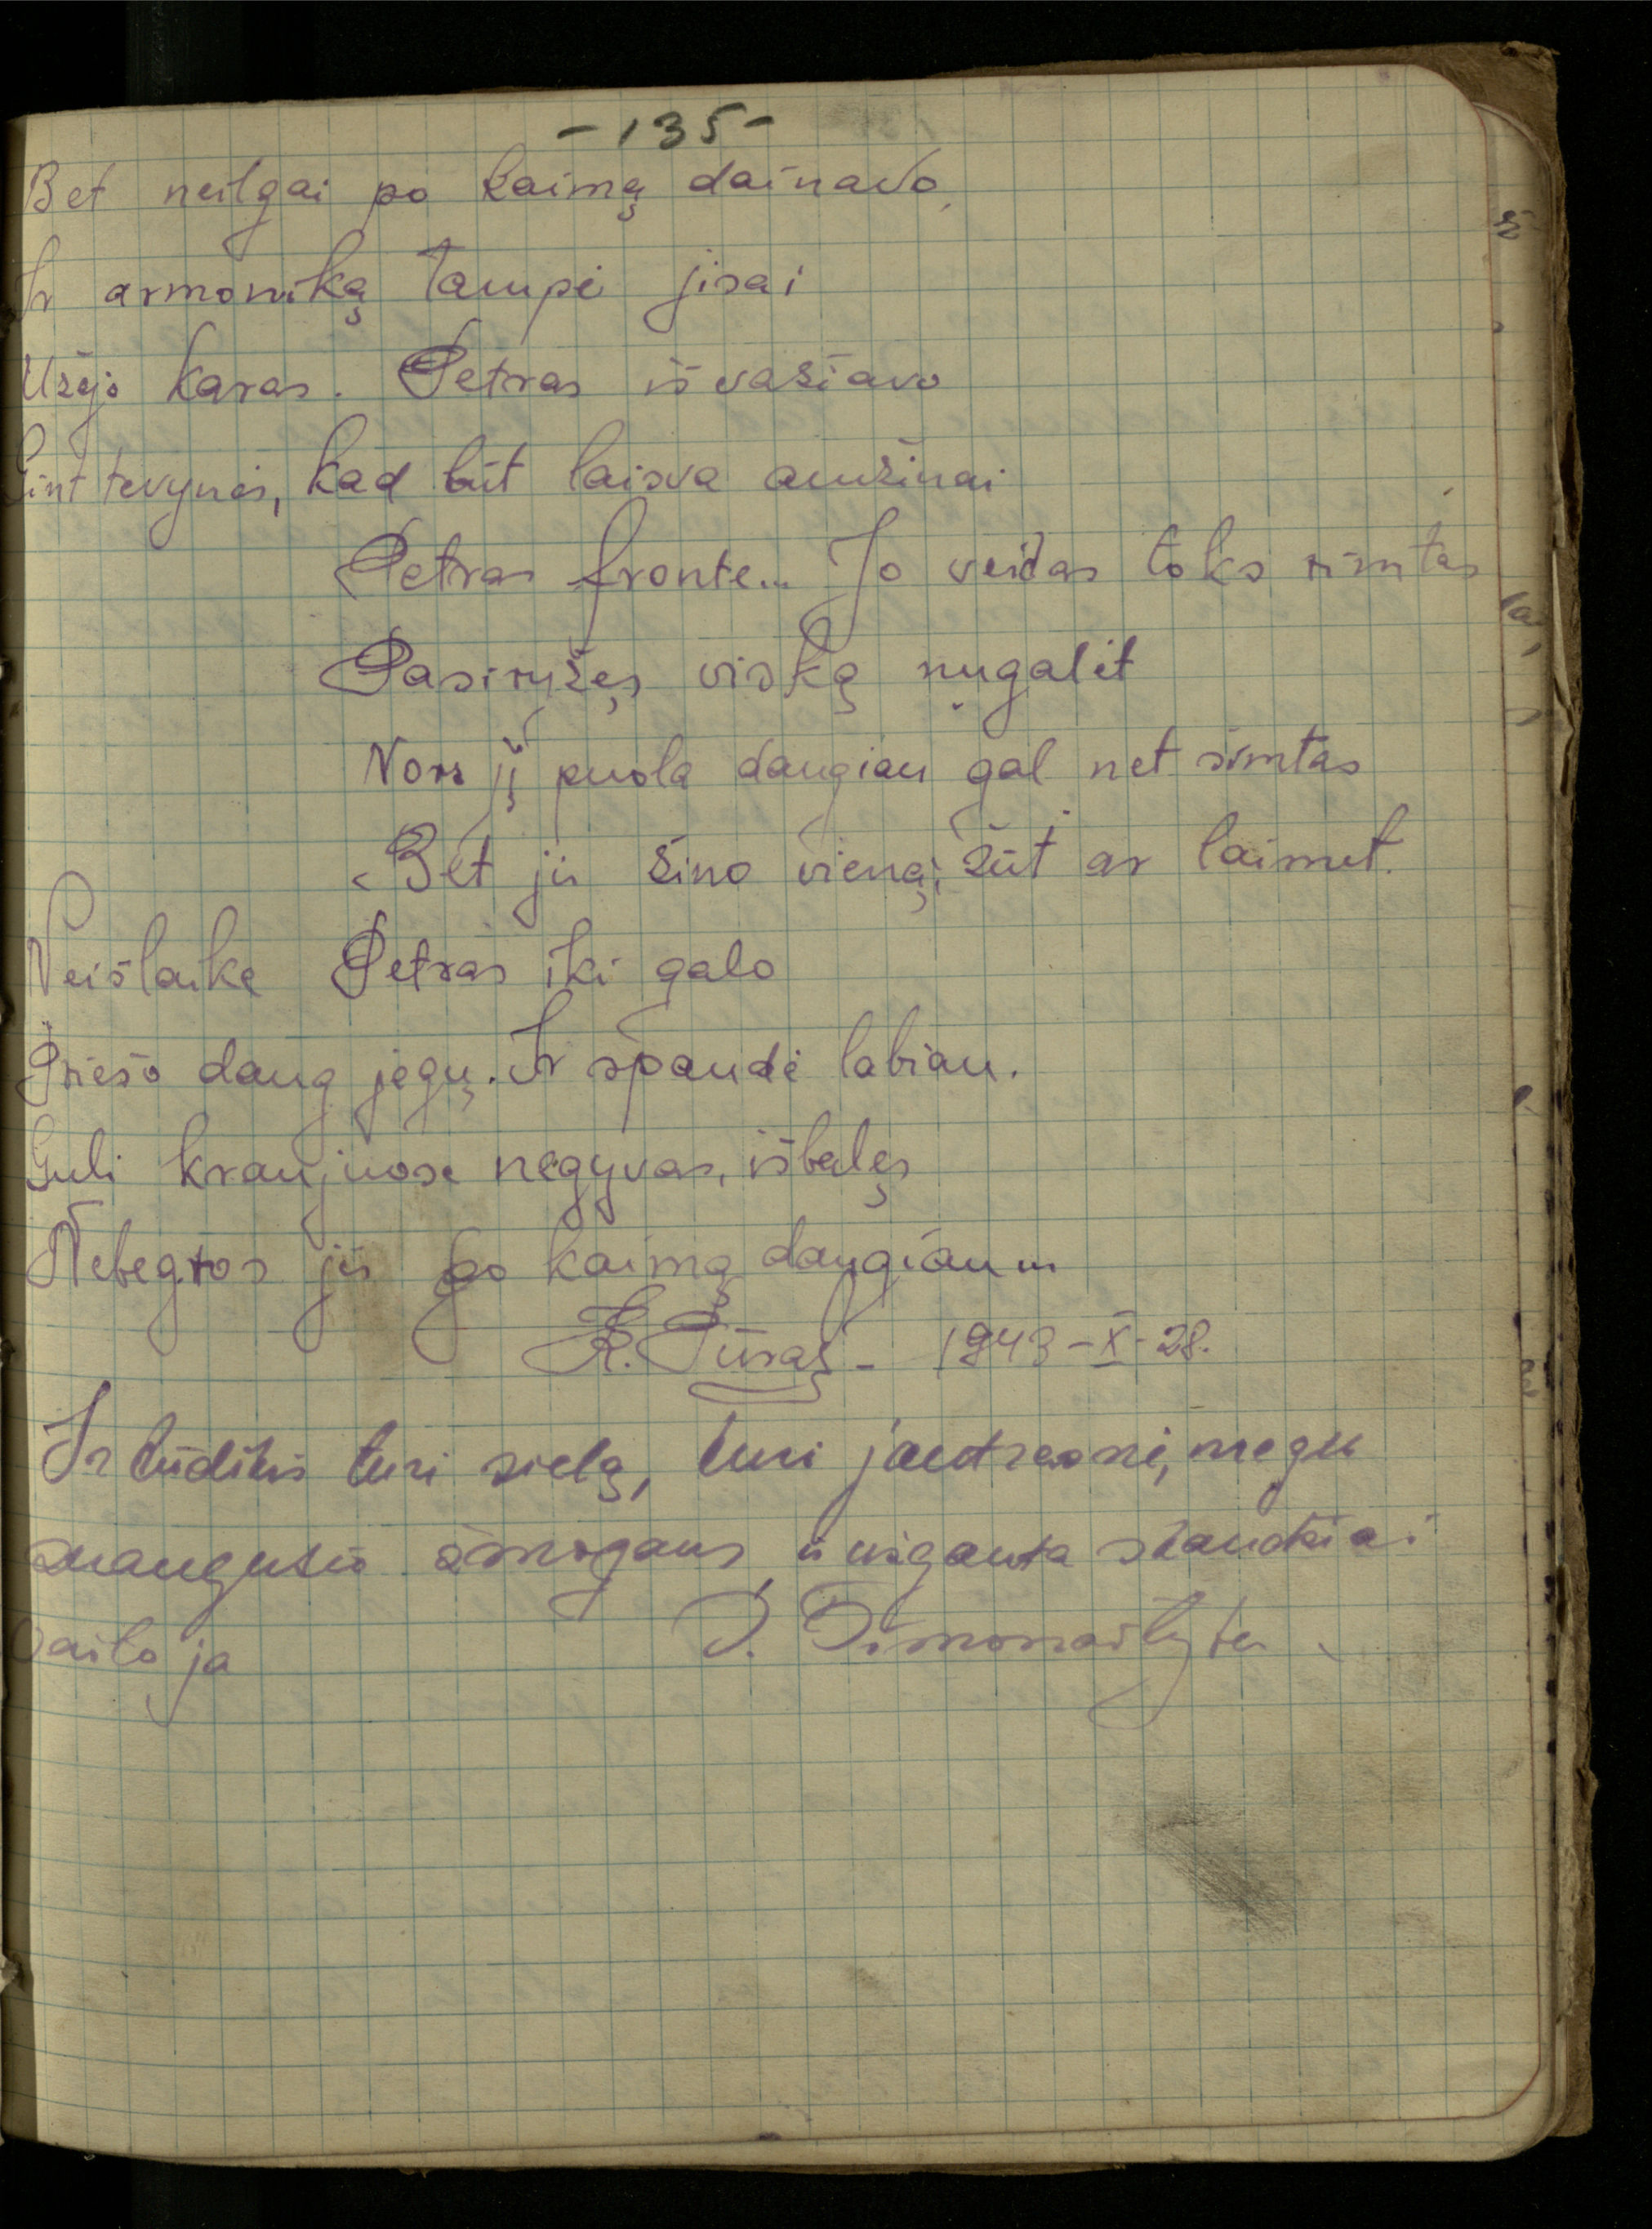 -135-
Bet neilgai po kaimą dainavo,
Ir armoniką tampė jisai
Užėjo karas. Petras išvažiavo
Gint tėvynės, kad būt laisva amžinai
Petras fronte... Jo veidas toks rimtas
Pasiryžęs viską nugalėt
Nors jį puola daugiau gal net šimtas
Bet jis žino vieną; žūt ar laimėt.
Neišlaikė Petras iki galo
Priešo daug jėgų. Ir spaudė labiau.
Guli kraujuose negyvas, išbalęs
Nebegros jis po kaimą daugiau...
K. Pūras - 1943-X-28.
Ir liūdesis turi sielą, turi jautresnę, negu
žmogaus skaudžiai
vaitoja D. Simonaitytė